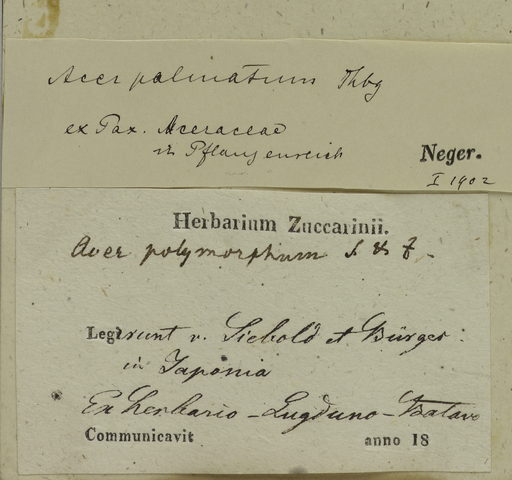 Acer palmatum Thbg
ex Pax. Aceraceae
in Pflanzenreich
Neger.
I 1902
Herbarium Zuccarinii.
Acer polymorphum S & Z.
Legerunt v. Siebold et Bürger
in Japonia
Ex herbario Lugduno-Batavo
Communicavit anno 18